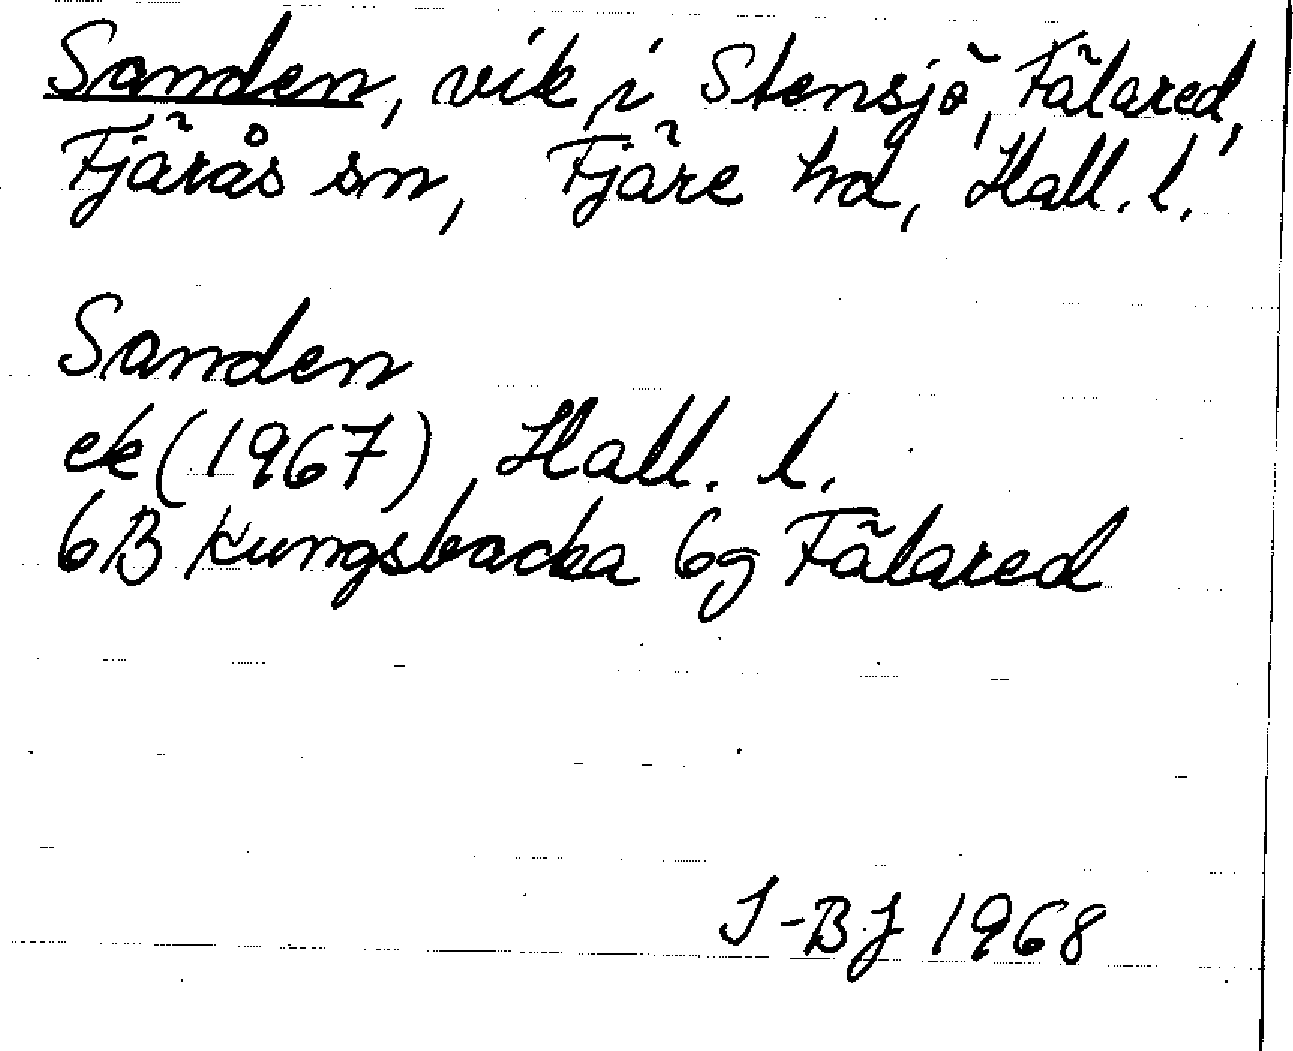 Sanden, vik i Stensjö, Fälared,
Fjärås sn, Fjäre hd, Hall. l.
Sanden
ek (1967) Hall. l.
6B Kungsbacka 6g Fälared
I-BJ 1968